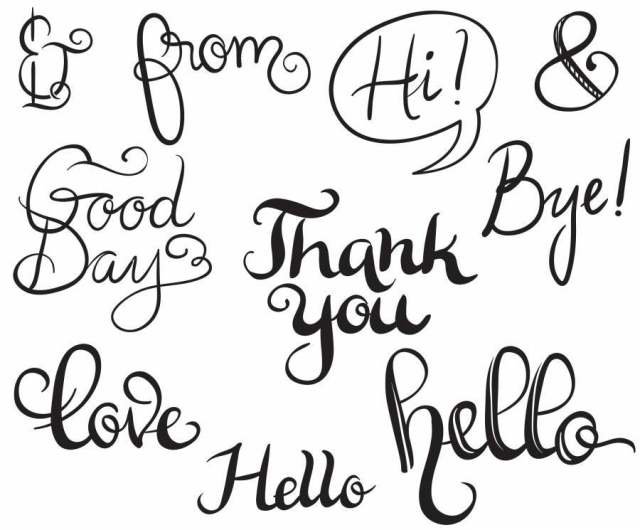 &
from
Hi!
&
Good
Day
Bye!
Thank
you
love
hello
Hello